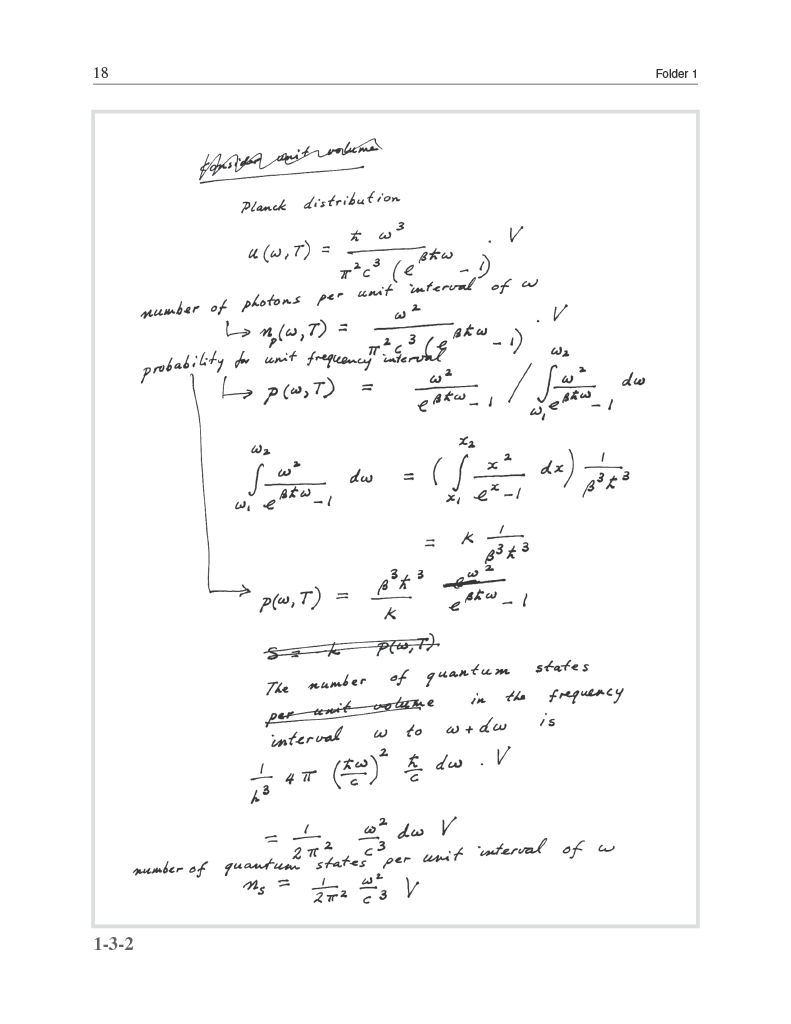 18
Folder 1
Consider unit volume
Planck distribution
u(ω,T) = ħ ω³ / π²c³ (e^βħω − 1) · V
number of photons per unit interval of ω
↳ n_p(ω,T) = ω² / π²c³ (e^βħω − 1) · V
probability for unit frequency interval
↳ p(ω,T) = ω² / (e^βħω − 1) / ∫_ω₁^ω₂ ω² / (e^βħω − 1) dω
∫_ω₁^ω₂ ω² / (e^βħω − 1) dω = (∫_x₁^x₂ x² / (e^x − 1) dx) 1 / β³ħ³
= K 1 / β³ħ³
p(ω,T) = β³ħ³ / K ω² / (e^βħω − 1)
S = k p(ω,T)
The number of quantum states
per unit volume in the frequency
interval ω to ω + dω is
1/h³ 4π (ħω/c)² ħ/c dω · V
= 1/2π² ω²/c³ dω V
number of quantum states per unit interval of ω
n_s = 1/2π² ω²/c³ V
1-3-2